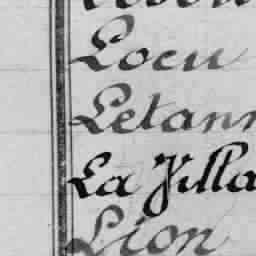 Locu
Letann
La Villa
Lion